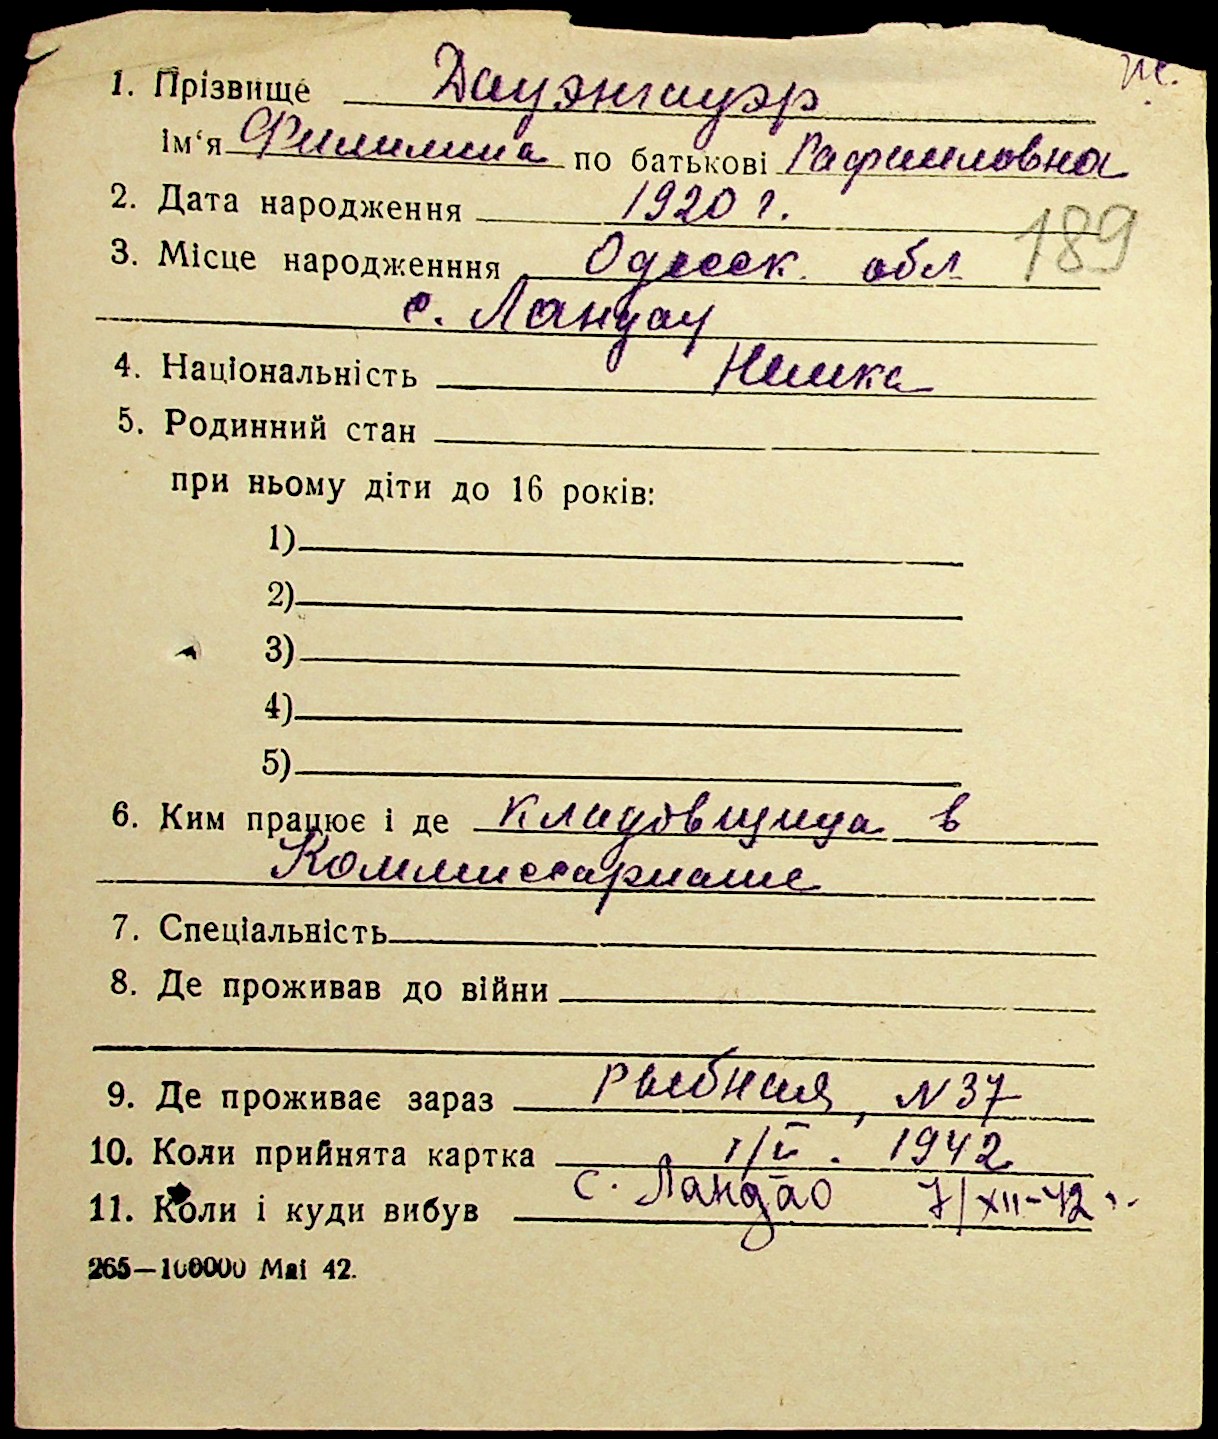 ж.
1. Прізвище Дауэнгауэр
ім‘я Филипина по батькові Рафаиловна
2. Дата народження 1920 г.
3. Місце народженння Одесск. обл 189
с. Ландау
4. Національність Немка
5. Родинний стан
при ньому діти до 16 років:
1)
2)
3)
4)
5)
6. Ким працює і де кладовщица в
Коммиссариате
7. Спеціальність
8. Де проживав до війни
9. Де проживає зараз Рыбная, N 37
10. Коли прийнята картка 1/II. 1942
11. Коли і куди вибув с. Ландао 7/XII-42 г.
265—100000 Маі 42.